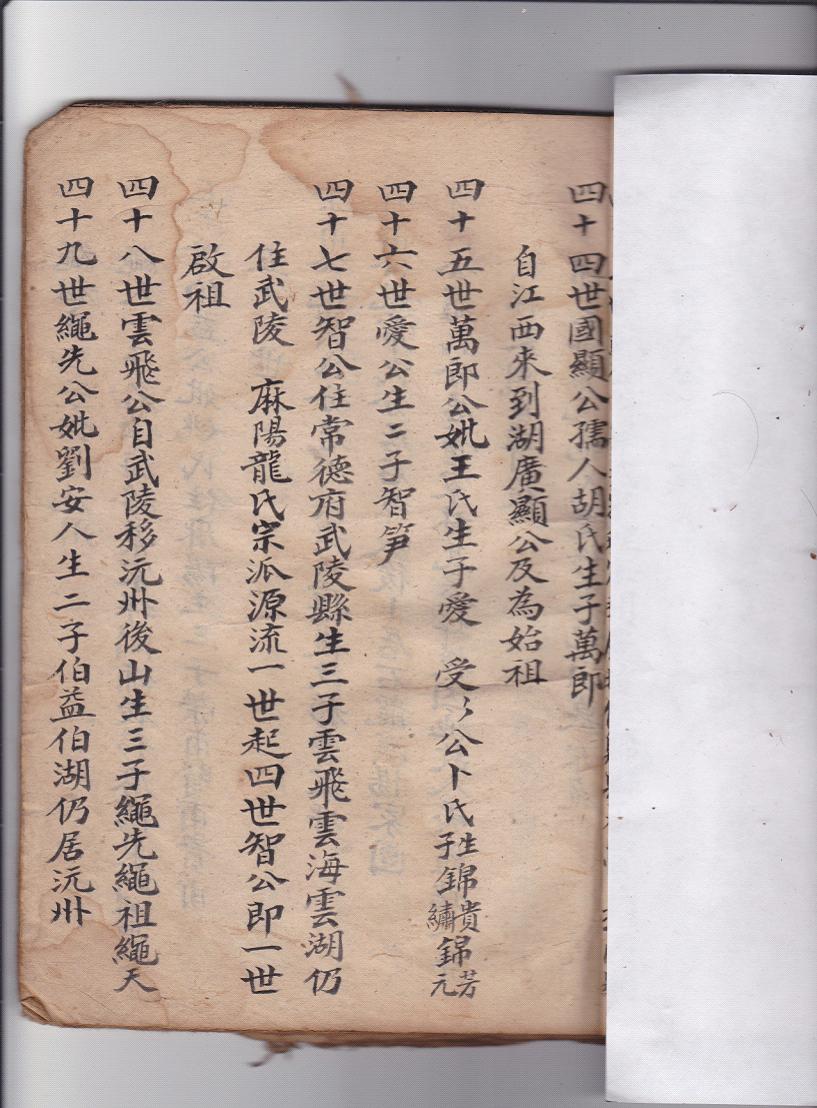 四十四世國顯公孺人胡氏生子萬郎
自江西來到湖廣顯公及為始祖
四十五世萬郎公妣王氏生子愛 受公卜氏生子錦貴繡錦芳元
四十六世愛公生二子智笋
四十七世智公住常德府武陵縣生三子雲飛雲海雲湖仍
住武陵 麻陽龍氏宗派源流一世起四世智公即一世
啟祖
四十八世雲飛公自武陵移沅州後山生三子繩先繩祖繩天
四十九世繩先公妣劉安人生二子伯益伯湖仍居沅州